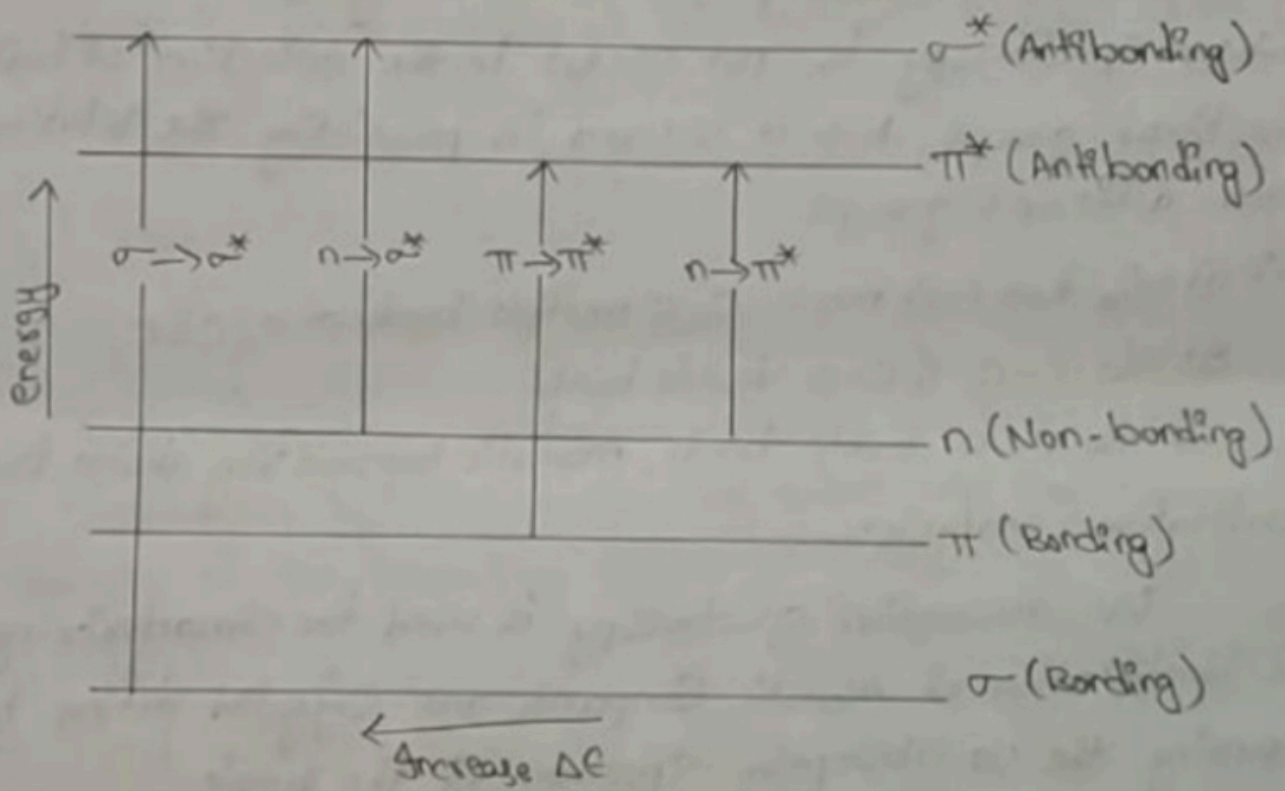 σ* (Antibonding)
π* (Antibonding)
energy
σ→σ* n→σ* π→π* n→π*
n (Non-bonding)
π (Bonding)
σ (Bonding)
Increase ΔE